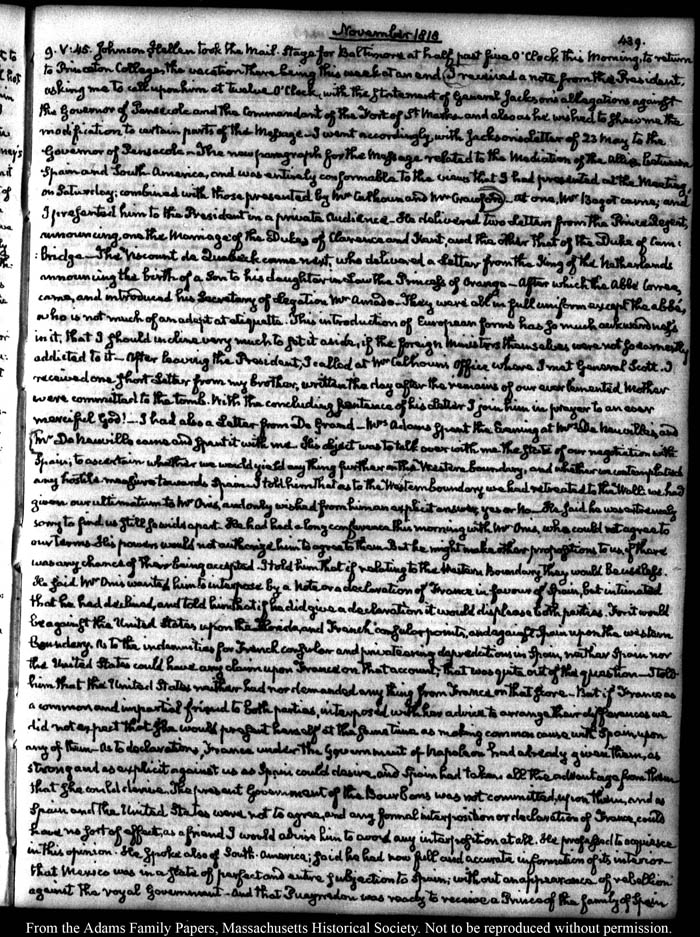 November 1818
439.
9. V:45. Johnson Hellen took the Mail Stage for Baltimore at half past five O'Clock this Morning, to return
to Princeton College, the vacation there being this week at an end. I received a note from the President,
asking me to call upon him at twelve O'Clock, with the Statement of General Jackson's allegations against
the Governor of Pensacola and the Commandant of the Fort of St Marks and also as he wished to shew me the
modification to certain parts of the Message. I went accordingly, with Jackson's Letter of 23 May to the
Governor of Pensacola. The new paragraph for the Message related to the Mediation of the Allies between
Spain and South-America, and was entirely conformable to the views that I had presented at the Meeting
on Saturday; combined with those presented by Mr Calhoun and Mr Crawford. at one, Mr Bagot came; and
I presented him to the President in a private Audience. He delivered two Letters from the Prince Regent,
announcing, one the Marriage of the Dukes of Clarence and Kent, and the other that of the Duke of Cam:
:bridge. The Viscount de Quabeck came next, who delivered a Letter from the King of the Netherlands
announcing the birth of a Son to his daughter in Law the Princess of Orange. After which the Abbé Correa,
came, and introduced his Secretary of Legation Mr Amado. They were all in full uniform except the abbé,
who is not much of an adept at etiquette. This introduction of European forms has so much awkwardness
in it, that I should incline very much to set it aside, if the foreign Ministers themselves were not so earnestly
addicted to it. After leaving the President, I called at Mr Calhoun's Office where I met General Scott. I
received one short Letter from my brother, written the day after the remains of our ever lamented Mother
were committed to the tomb. With the concluding sentence of his Letter I join him in prayer to an ever
merciful God! I had also a Letter from De Grand. Mrs Adams spent the Evening at Mrs De Neuville's, and
Mr De Neuville came and spent it with me. His object was to talk over with me the State of our negotiation with
Spain; to ascertain whether we would yield any thing further on the Western boundary, and whether we contemplated
any hostile measure towards Spain. I told him that as to the Western boundary we had retreated to the Wall; we had
given our ultimatum to Mr Onis, and only wished from him an explicit answer, yes or No. He said he was extremely
sorry to find us still so wide apart. He had had a long conference this morning with Mr Onis, who could not agree to
our terms. His powers would not authorize him to agree to them. But he might make other propositions to us, if there
was any chance of their being accepted. I told him that if relating to the Western Boundary they would be useless.
He said Mr Onis wanted him to interpose by a Note or a declaration of France in favour of Spain, but intimated
that he had declined, and told him that if he did give a declaration it would displease both parties. For it would
be against the United States upon the Florida, and French consular points, and against Spain upon the western
boundary. As to the indemnities for French consular and privateering depredations in Spain, neither Spain nor
the United States could have any claim upon France on that account; that was quite out of the question. I told
him that the United States neither had nor demanded any thing from France on that score. But if France as
a common and impartial friend to both parties, interposed with her advice to arrange their differences we
did not expect that she would present herself at the same time as making common cause with Spain, upon
any of them. As to declarations, France under the Government of Napoleon had already given them, as
strong and as explicit against us as Spain could desire, and Spain had taken all the advantage from them
that she could derive. The present Government of the Bourbons was not committed upon them, and as
Spain and the United States were not to agree, and any formal interposition or declaration of France, could
have no sort of effect, as a friend I would advise him to avoid any interposition at all. He professed to acquiesce
in this opinion. He spoke also of South-America; said he had now full and accurate information of its interior
that Mexico was in a State of perfect and entire subjection to Spain; without an appearance of rebellion
against the royal Government. And that Pueyrredon was ready to receive a Prince of the family of Spain
From the Adams Family Papers, Massachusetts Historical Society. Not to be reproduced without permission.